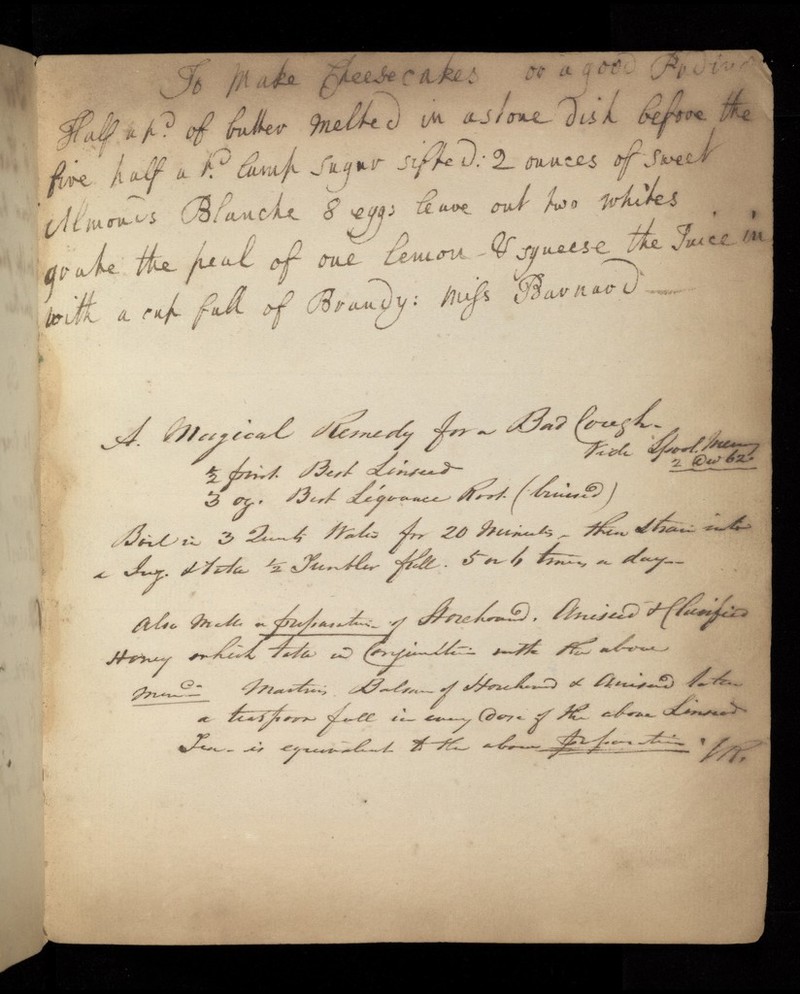 To Make Cheesecakes or a good Puding
Half a pd. of butter Melted in a stone Dish before the
fire half a pd. Lump Sugar sifted: 2 ounces of sweet
Almonds Blanche 8 eggs leave out two whites
grate the peal of one Lemon & squeese the Juice in
with a cup full of Brandy: Miss Barnard
A. Magical Remedy for a Bad Cough.
Vide
½ pint. Best Linseed
3 oz. Best Liquance Root (bruised)
Boil in 3 Quarts Water for 20 Minutes, then Strain into
a Jug. & take ½ Tumbler full. 5 or 6 times a day
Also Make a preparation of Horehound. Aniseed & Clarified
Honey which take in Conjunction with the above
Memo. Martins Balsam of Horehound & Aniseed taken
a teaspoon full in every Dose of the above Linseed
Tea is equivalent to the above preparation JR.